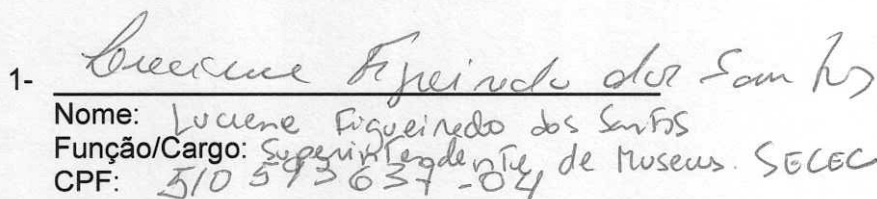 1- Luciene Figueiredo dos Santos
Nome: Luciene Figueiredo dos Santos
Função/Cargo: Superintendente de Museus. SECEC
CPF: 510 513 637-04